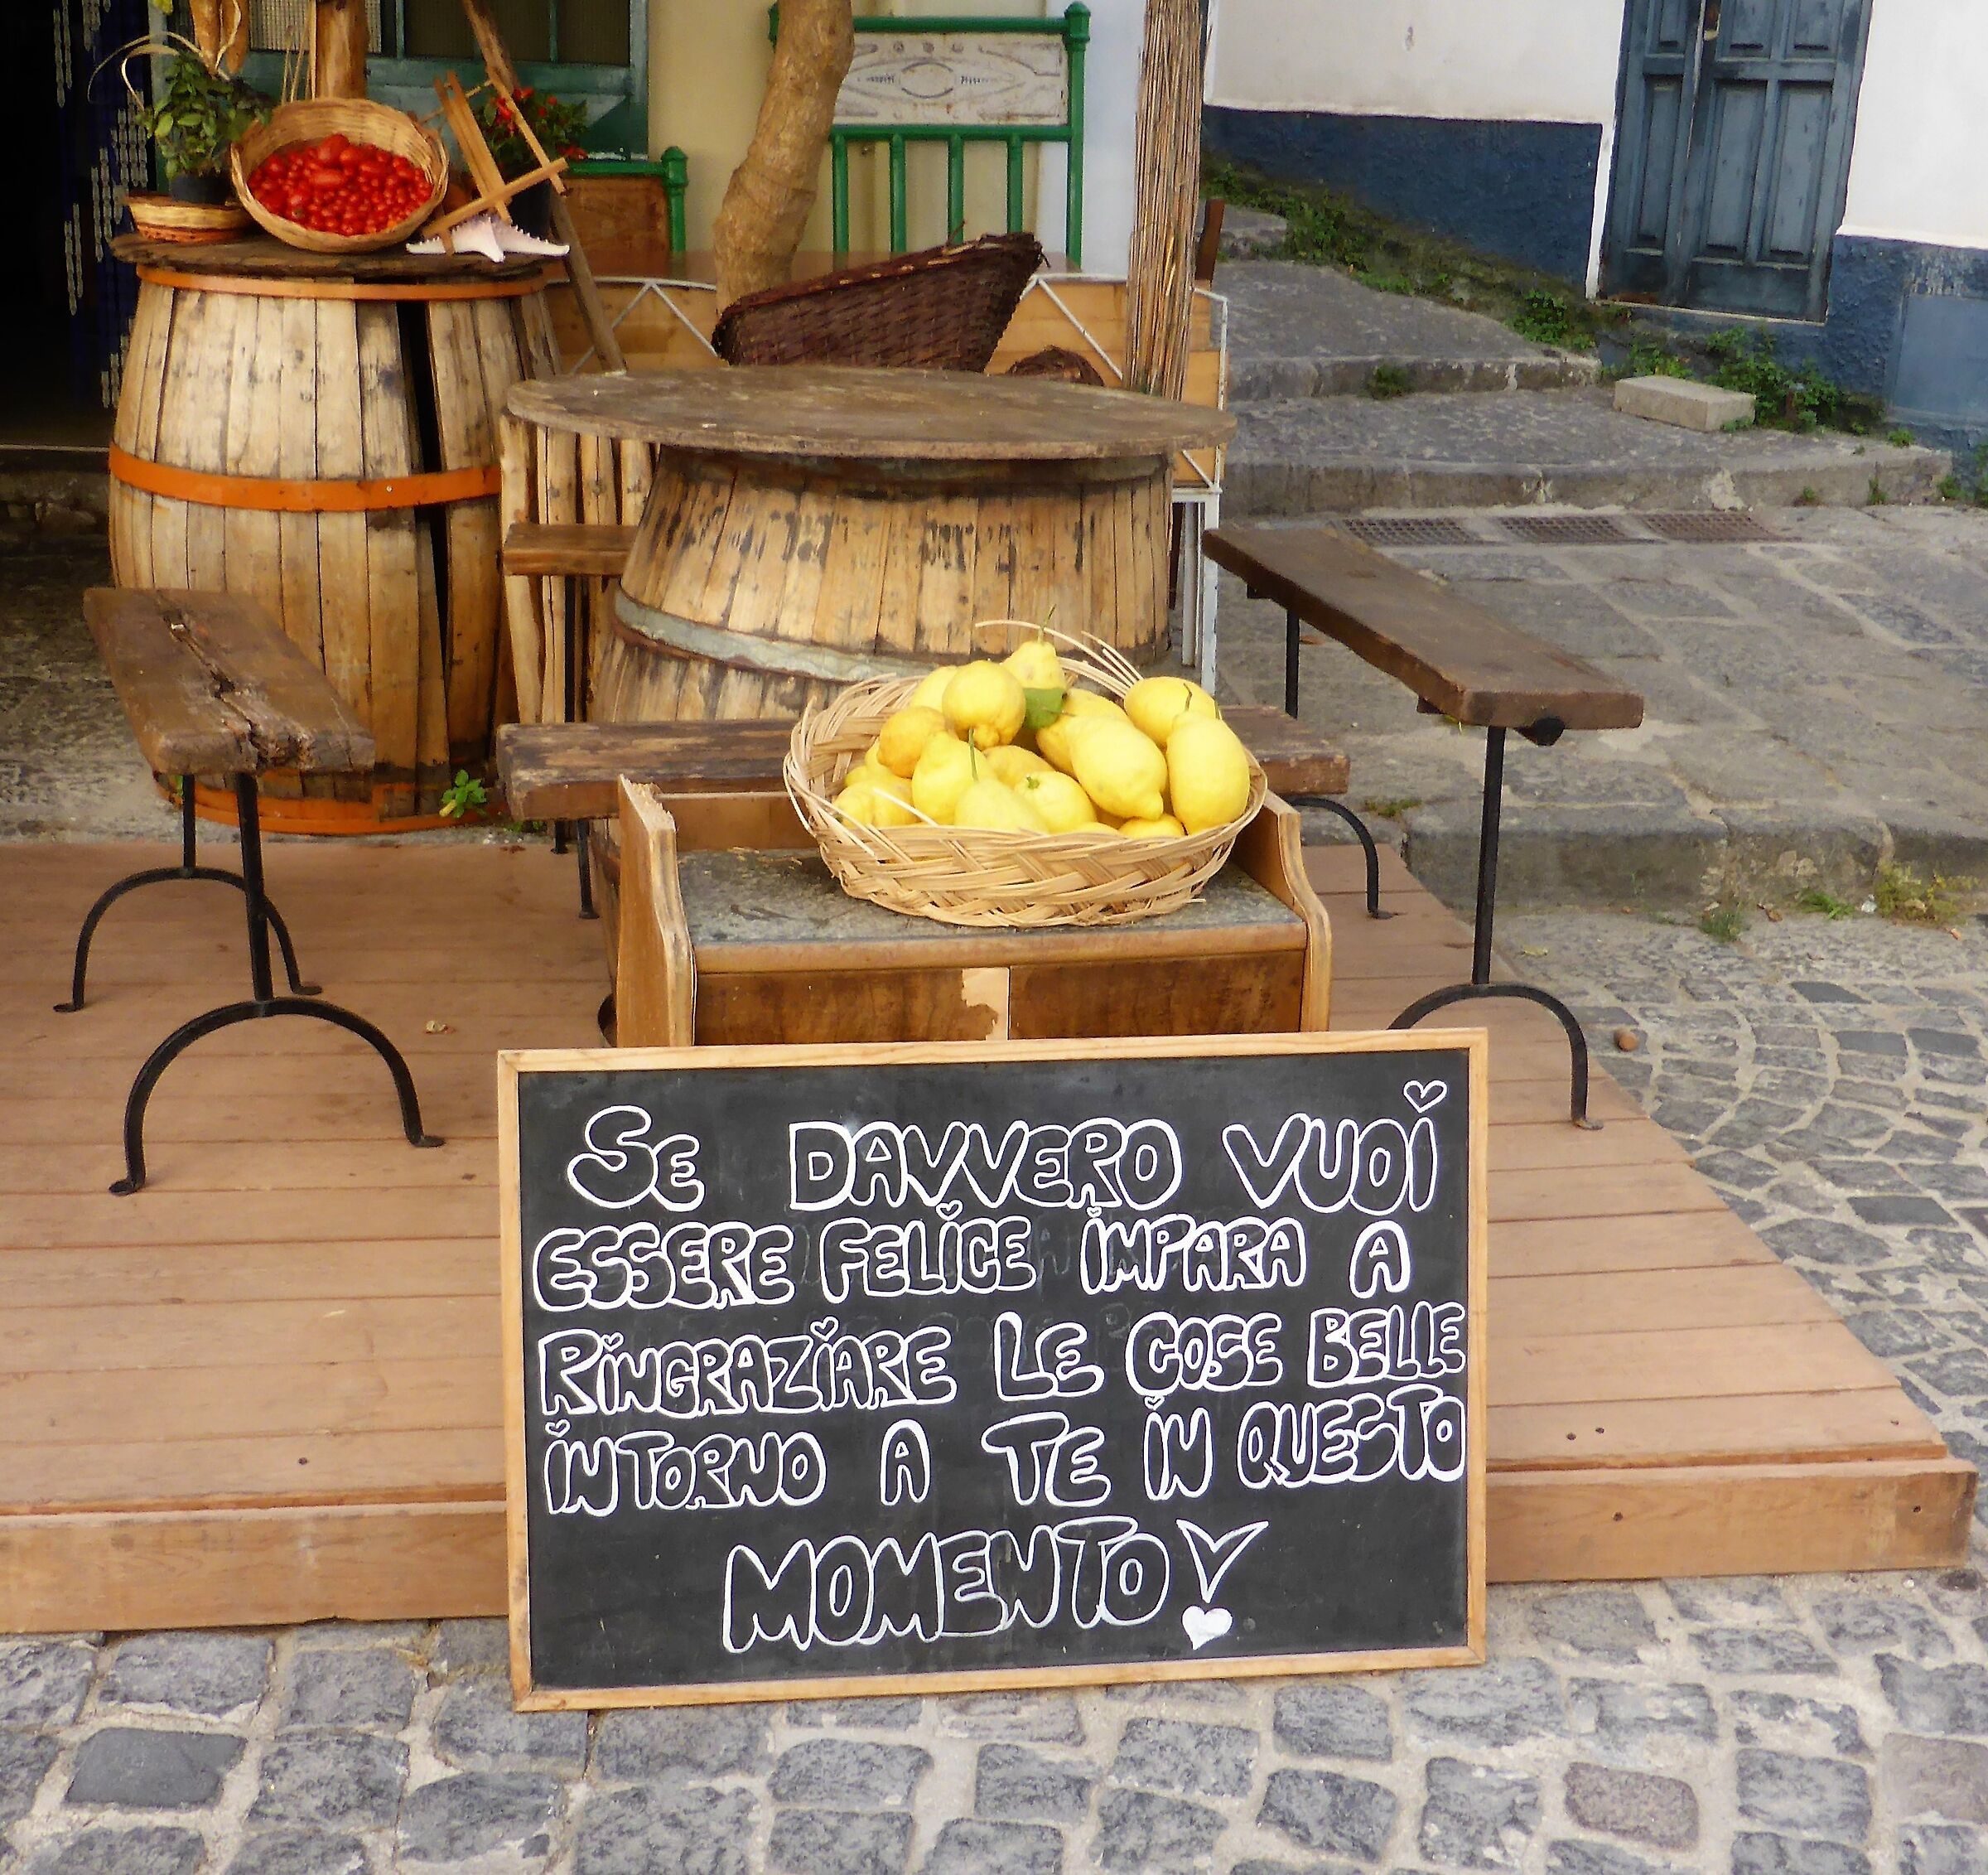 Se DAVVERO VUOi
ESSERE FELiCE iMPARA A
RiNGRAZiARE LE COSE BELLE
iNTORNO A TE iN QUESTO
MOMENTO!